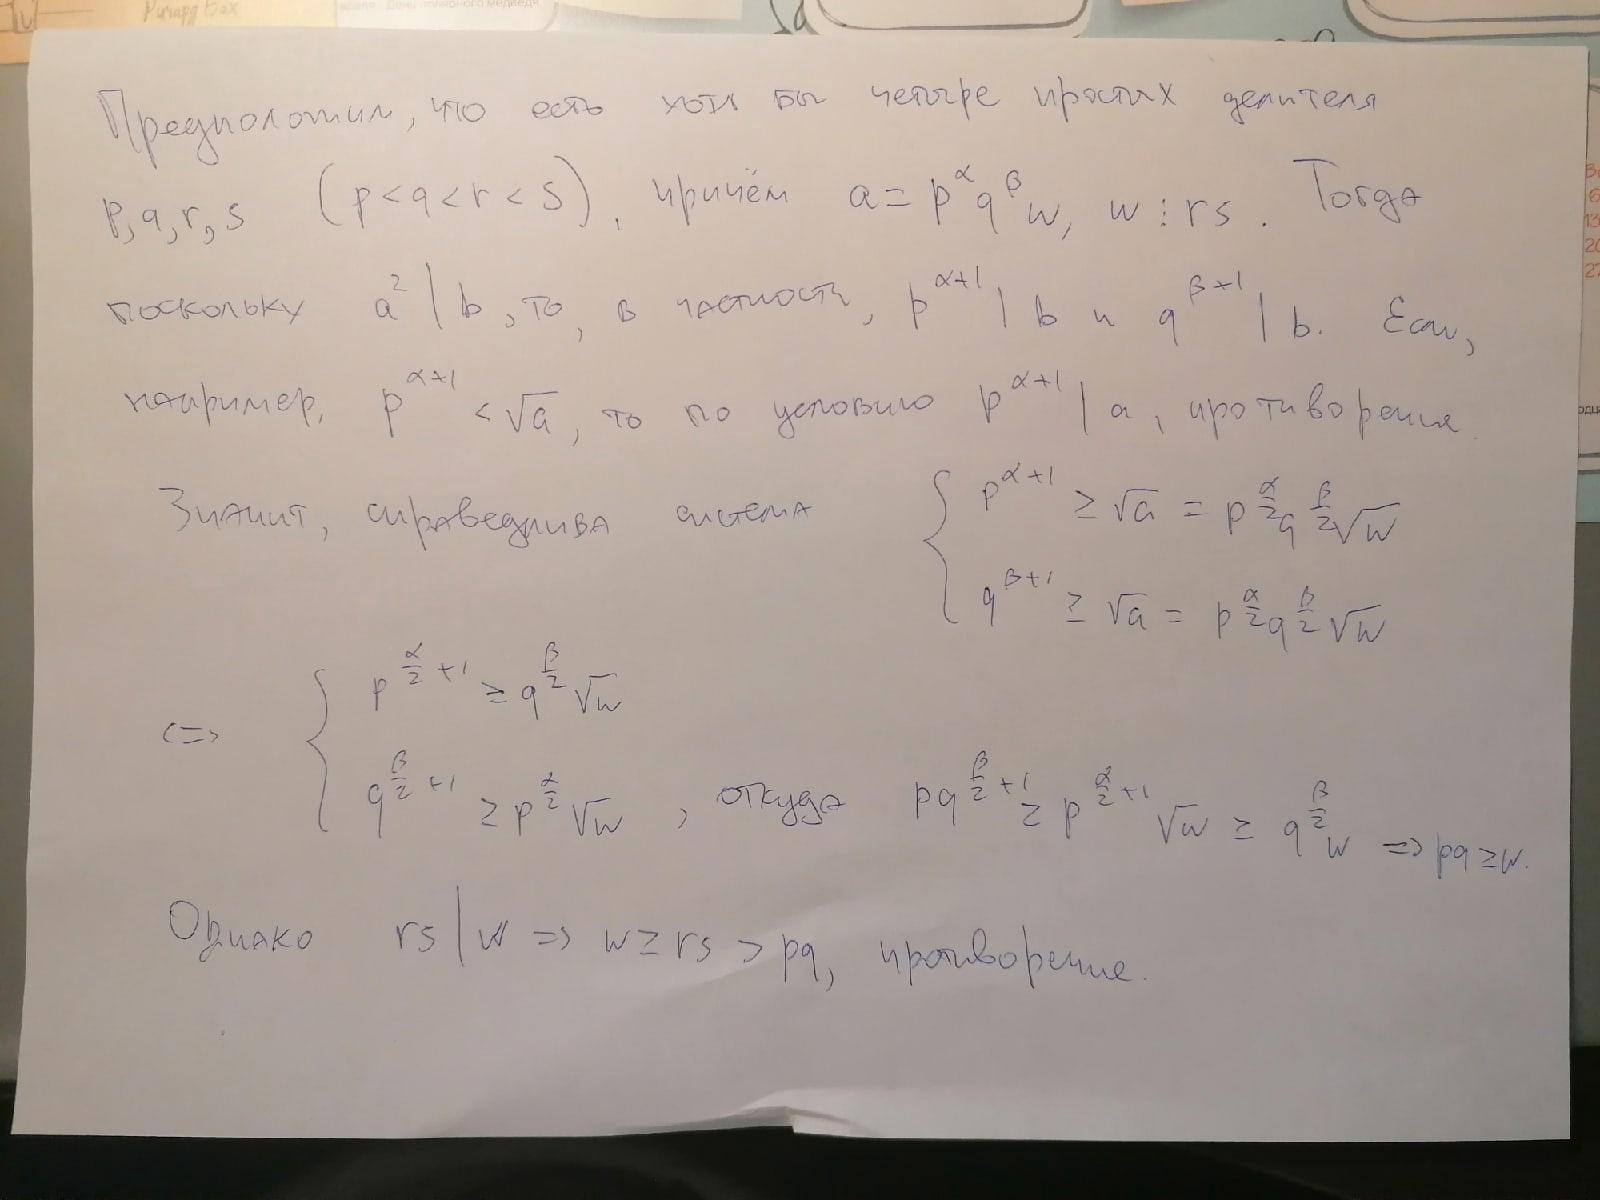 Ричард Бах
День полярного медведя
Предположим, что есть хотя бы четыре простых делителя
p, q, r, s (p < q < r < s), причём a = p^α q^β w, w ⋮ rs. Тогда
поскольку a² | b, то, в частности, p^(α+1) | b и q^(β+1) | b. Если,
например, p^(α+1) < √a, то по условию p^(α+1) | a, противоречие.
Значит, справедлива система { p^(α+1) ≥ √a = p^(α/2) q^(β/2) √w
q^(β+1) ≥ √a = p^(α/2) q^(β/2) √w
<=> { p^(α/2+1) ≥ q^(β/2) √w
q^(β/2+1) ≥ p^(α/2) √w, откуда pq^(β/2+1) ≥ p^(α/2+1) √w ≥ q^(β/2) w => pq ≥ w.
Однако rs | w => w ≥ rs > pq, противоречие.